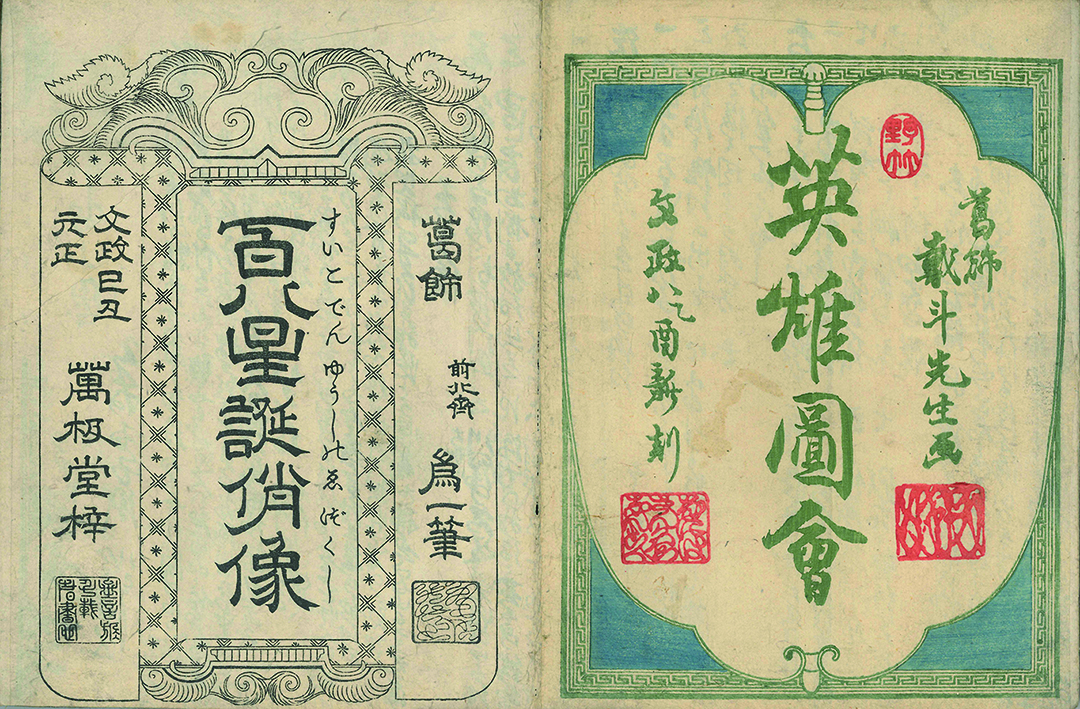 野竹
葛飾
戴斗先生画
英雄圖會
文政八乙酉新刻
葛飾
前北斎
為一筆
すいこでんゆうしのゑづくし
百八星誕俏像
文政己丑
元正
萬极堂梓